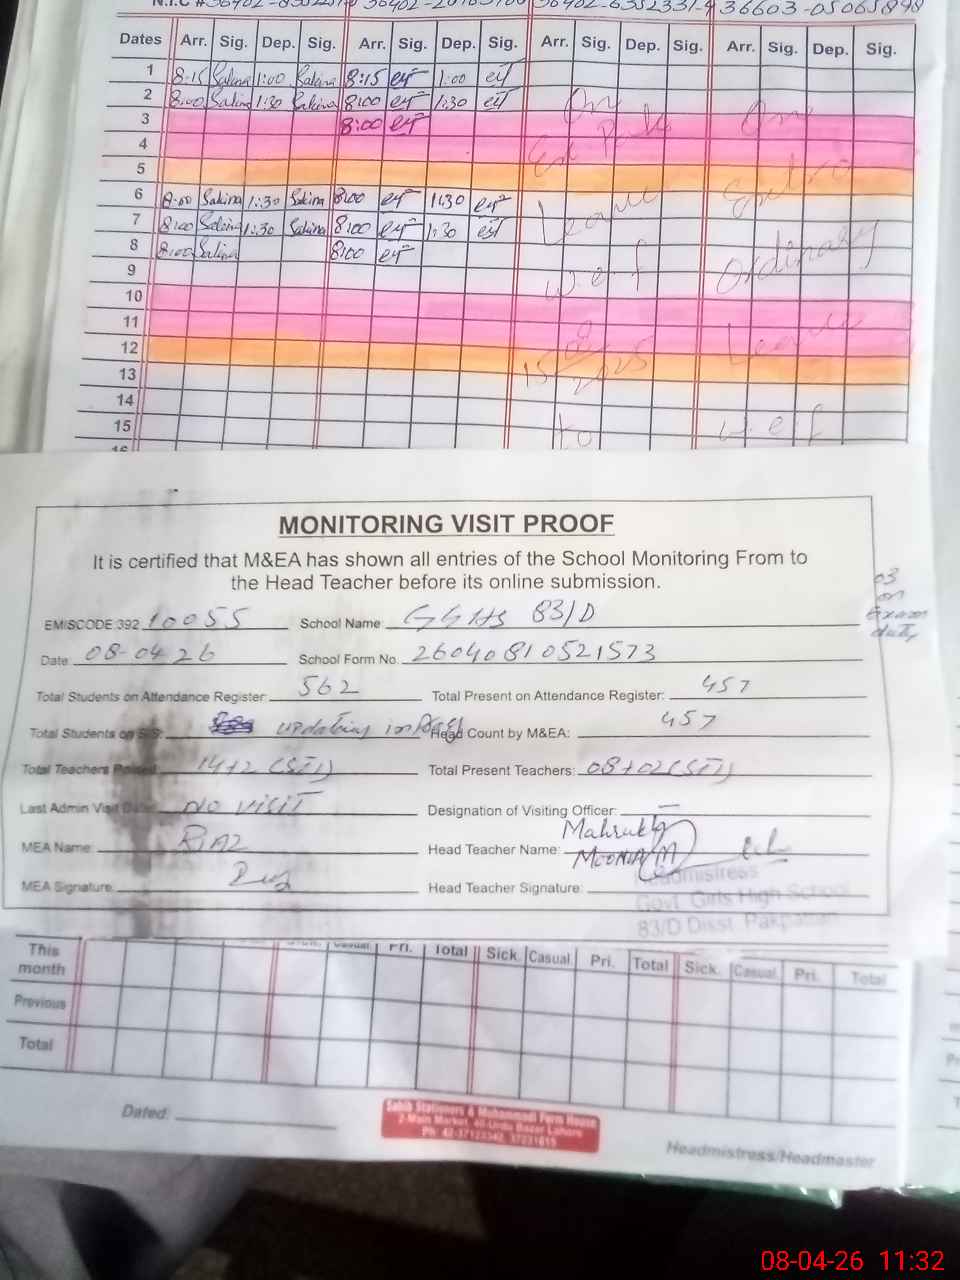 Dates Arr. Sig. Dep. Sig. Arr. Sig. Dep. Sig. Arr. Sig. Dep. Sig. Arr. Sig. Dep. Sig.
1 8:15 Sakina 1:00 Sakina 8:15 1:00
2 8:00 Sakina 1:30 Sakina 8:00 1:30
3 8:00
4
5
6 8:00 Sakina 1:30 Sakina 8:00 1:30
7 8:00 Sakina 1:30 Sakina 8:00 1:30
8 8:00 Sakina 8:00
9
10
11
12
13
14
15
On
Leave
w.e.f
15 08 2025
to
On
Extra
Ordinary
Leave
w.e.f
MONITORING VISIT PROOF
It is certified that M&EA has shown all entries of the School Monitoring From to
the Head Teacher before its online submission.
03
on
Exam
duty
EMISCODE 392 10055 School Name: GGHS 83/D
Date: 08-04-26 School Form No. 26040810521573
Total Students on Attendance Register: 562 Total Present on Attendance Register: 457
Total Students on SIS: updating in Head Count by M&EA: 457
Total Teachers Posted: 14+2 (STI) Total Present Teachers: 08+02 (STI)
Last Admin Visit Date: NO VISIT Designation of Visiting Officer: —
MEA Name: Riaz Head Teacher Name: Mahrukh
MEA Signature: Head Teacher Signature:
Headmistress
Govt. Girls High School
83/D Disst. Pakpattan
This month Casual Pri. Total Sick. Casual Pri. Total Sick. Casual Pri. Total
Previous
Total
Dated:
Sahib Stationers & Mohammadi Form House
2-Main Market, 40-Urdu Bazar Lahore
Headmistress/Headmaster
08-04-26 11:32